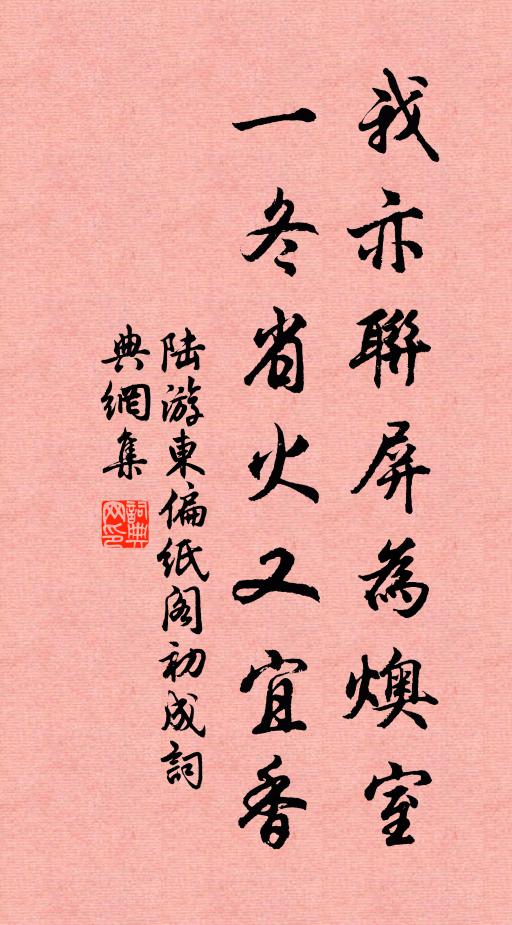 我亦聯屏為燠室
一冬省火又宜香
陆游東偏紙阁初成詞
典網集
詞典
网印